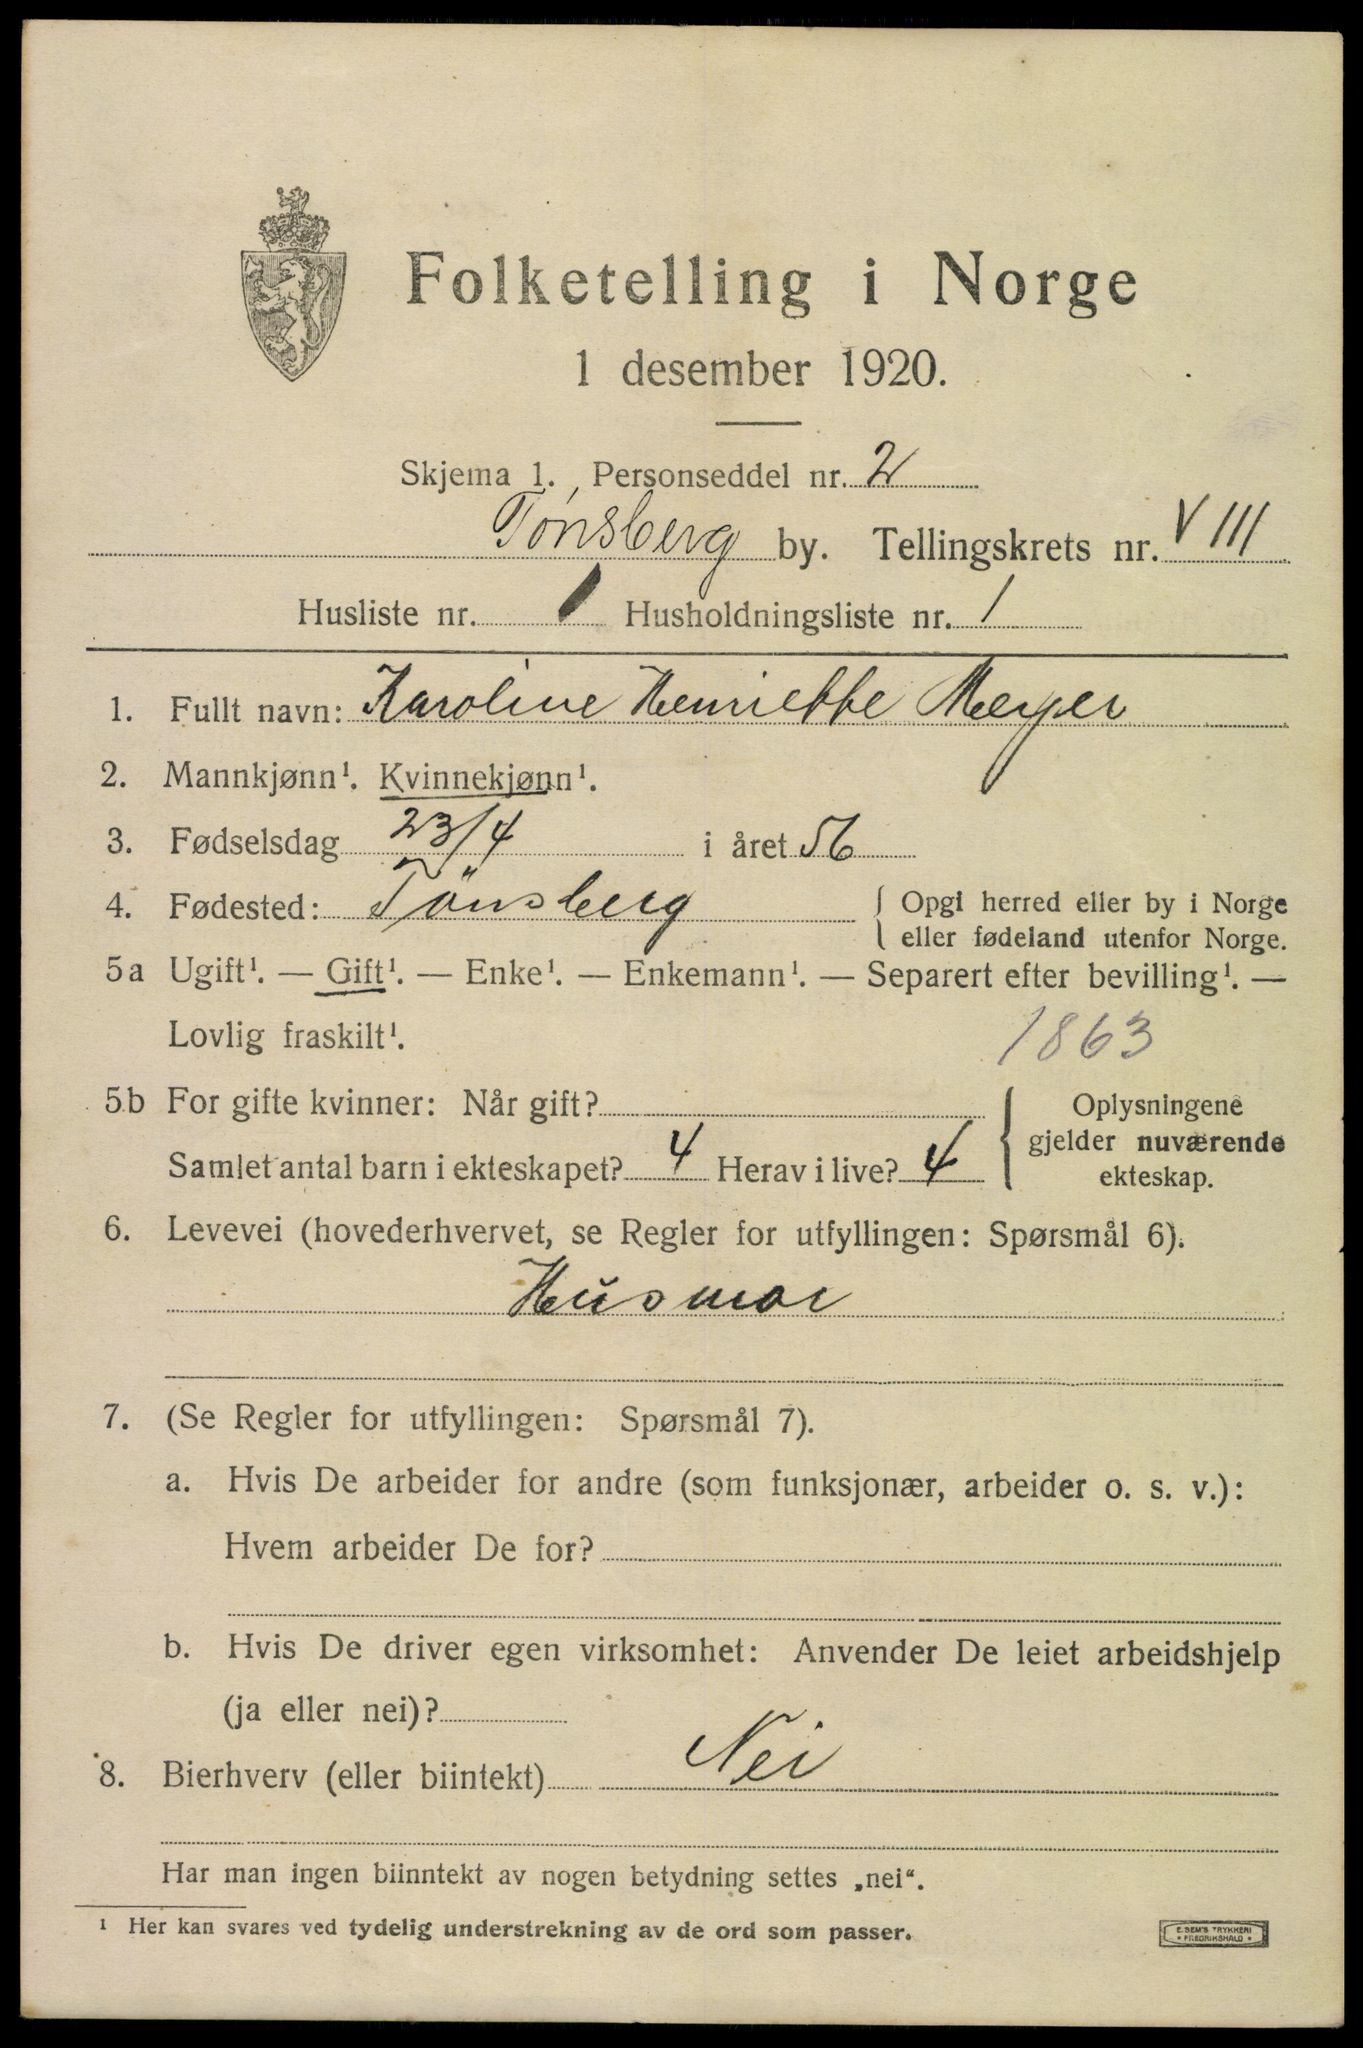 Folketelling i Norge
1 desember 1920.
Skjema 1. Personseddel nr. 2
Tønsberg by. Tellingskrets nr. VIII
Husliste nr. 1 Husholdningsliste nr. 1
1. Fullt navn: Karoline Henriette Meyer
2. Mannkjønn¹. Kvinnekjønn¹.
3. Fødselsdag 23/4 i året 56
4. Fødested: Tönsberg { Opgi herred eller by i Norge
eller fødeland utenfor Norge.
5a Ugift¹. — Gift¹. — Enke¹. — Enkemann¹. — Separert efter bevilling¹. —
Lovlig fraskilt¹.
1863
5b For gifte kvinner: Når gift? { Oplysningene
gjelder nuværende
Samlet antal barn i ekteskapet? 4 Herav i live? 4
ekteskap.
6. Levevei (hovederhvervet, se Regler for utfyllingen: Spørsmål 6).
Husmor
7. (Se Regler for utfyllingen: Spørsmål 7).
a. Hvis De arbeider for andre (som funksjonær, arbeider o. s. v.):
Hvem arbeider De for?
b. Hvis De driver egen virksomhet: Anvender De leiet arbeidshjelp
(ja eller nei)?
8. Bierhverv (eller biintekt) Nei
Har man ingen biinntekt av nogen betydning settes „nei“.
¹ Her kan svares ved tydelig understrekning av de ord som passer.
E. SEM'S TRYKKERI
• FREDRIKSHALD •